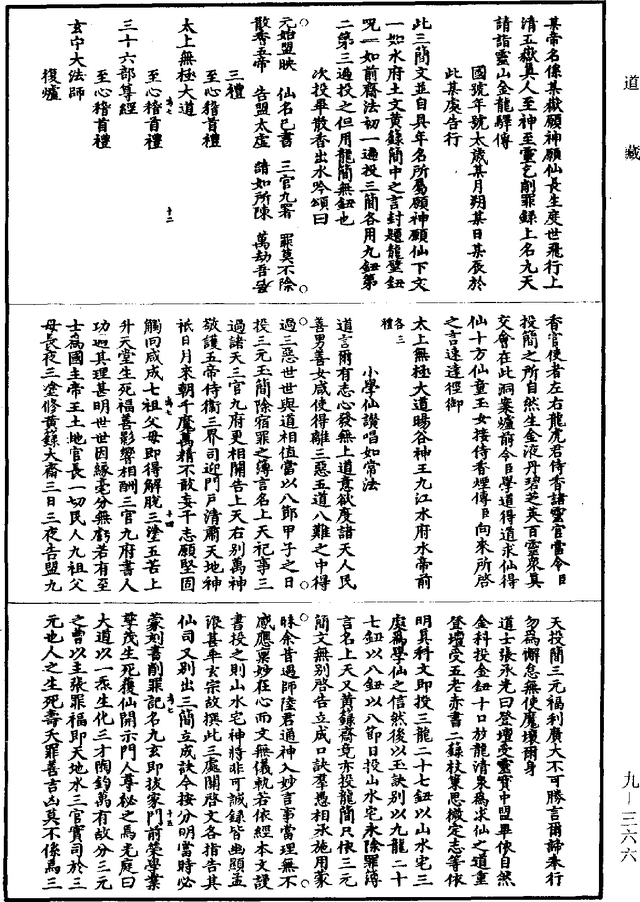 道藏
某帝名係某嶽願神願仙長生度世飛行上
清五嶽真人至神至靈乞削罪錄上名九天
請詣靈山金龍驛傳
國號年號太歲某月朔某日某辰於
此某處告行
此三簡文並自具年名所屬願神願仙下文
一如水府土文黃錄簡中之言封題龍璧鈕
呪一如前齋法初一遍投三簡各用九鈕第
二第三遍投之但用龍簡無鈕也
次投畢散香出水吟頌曰
元始盟映 仙名已書 三官九署 罪莫不除
散香五帝 告盟太虛 請如所陳 萬劫吾
三禮
至心稽首禮
太上無極大道
至心稽首禮
三十六部尊經
至心稽首禮
玄中大法師
復爐
香官使者左右龍虎君侍香諸靈官當令臣
投簡之所自然生金液丹碧芝英百靈眾真
交會在此洞案爐前令臣學道得道求仙得
仙十方仙童玉女接侍香煙傳臣向來所啓
之言速達徑御
太上無極大道暘谷神王九江水府水帝前
各三禮
小學仙讚唱如常法
道言爾有志心發無上道意欲度諸天人民
善男善女咸使得離三惡五道八難之中得
過三惡世世與道相值當以八節甲子之日
投三元玉簡除宿罪之簿言名上天祀事三
過諸天三官九府更相開告上天右別萬神
敬護五帝侍衛三界司迎門戶清肅天地神
祇日月來朝千魔萬精不敢妄干志願堅固
觸向咸成七祖父母即得解脫三塗五苦上
升天堂生死福善影響相酬三官九府書人
功過其理甚明世世因緣毫分無虧若有至
士為國主帝王土地官長一切民人九祖父
母長夜三塗修黃籙大齋三日三夜告盟九
天投簡三元福利廣大不可勝言爾諦奉行
勿為懈怠無使魔壞爾身
道士張永先曰登壇受靈寶中盟畢依自然
金科投金鈕十口放龍清泉為求仙之道重
登壇受五老赤書二錄杖策思微定志等依
明具科文即投三龍二十七鈕以山水宅三
處為學仙之信然後以玉訣別以九龍二十
七鈕以八鈕以八節日投山水宅永除罪簿
言名上天又黃籙齋竟亦投龍簡只依三元
簡文無別啓告立成口訣羣愚相承施用蒙
昧余昔過師陸君通神入妙言事當理無不
感應稟妙在心而文無儀軌若依經本文謾
書投之則山水宅神將非可誠錄皆幽顯孟
浪甚乎玄宗故撰此三處開啓文各指告其
仙司又別出三簡立成訣令按分明當時必
蒙刻書削罪記名九玄即拔家門前榮學業
華茂生死獲仙開示門人尊秘之焉光庭曰
大道以一炁生化三才陶鈞萬有故分三元
之曹以主張罪福即天地水三官實司於三
元也人之生死壽夭罪善吉凶莫不係焉三
九－三六六